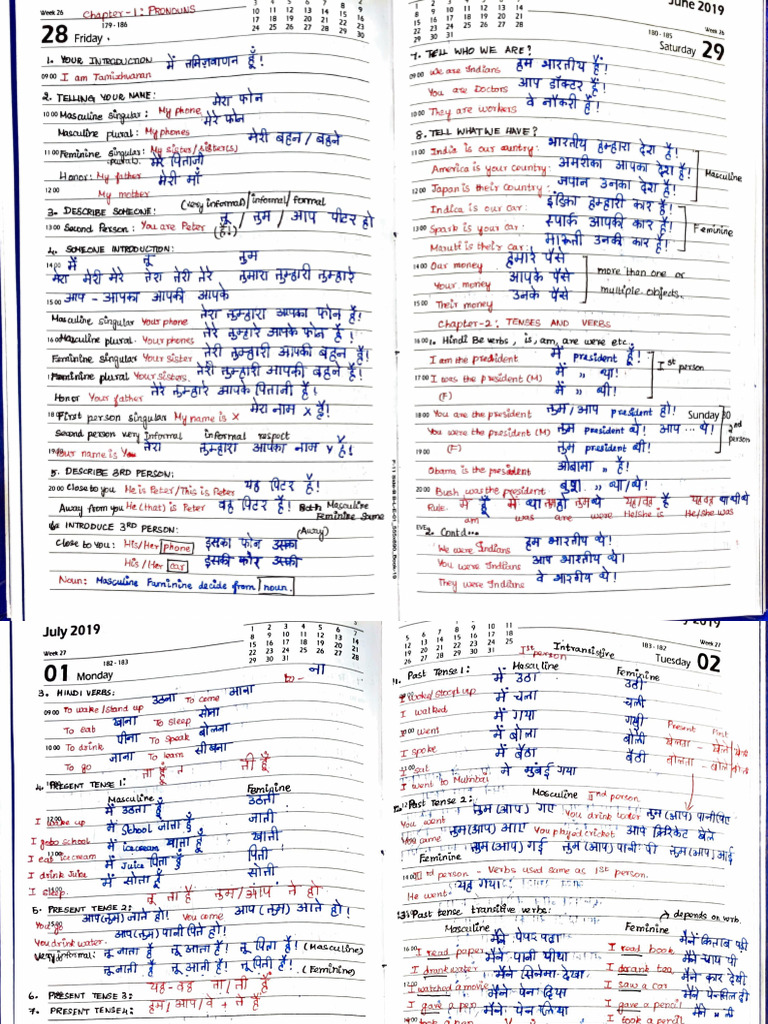 Week 26
Chapter-1: PRONOUNS
179 - 186
28 Friday
1. YOUR INTRODUCTION मैं तमिज़्वाणन हूँ!
09:00 I am Tamizhvanan
2. TELLING YOUR NAME:
मेरा फोन
10:00 Masculine singular: My phone
मेरे फोन
Masculine plural: My phones
मेरी बहन / बहने
11:00 Feminine singular: My sister/sister(s)
plural: मेरे पिताजी
Honor: My father
मेरी माँ
12:00 My mother
(very informal/informal/formal
3. DESCRIBE SOMEONE:
13:00 Second Person: You are Peter तू / तुम / आप पीटर हो
4. SOMEONE INTRODUCTION:
14:00 मैं तू तुम
मेरा मेरी मेरे तेरा तेरी तेरे तुमारा तुम्हारी तुम्हारे
आप - आपका आपकी आपके
15:00
Masculine singular Your phone तेरा तुम्हारा आपका फोन है!
16:00 Masculine plural. Your phones तेरे तुम्हारे आपके फोन है!
Feminine singular Your sister तेरी तुम्हारी आपकी बहन है!
Feminine plural Your sisters. तेरी तुम्हारी आपकी बहने है!
Honor Your father तेरे तुम्हारे आपके पिताजी है!
18:00 First person singular My name is X मेरा नाम X है!
Second person very informal informal respect
19:00 Your name is तेरा तुम्हारा आपका नाम Y है!
5. DESCRIBE 3RD PERSON:
20:00 Close to you He is Peter/This is Peter यह पिटर है!
Away from you He (that) is Peter वह पिटर है! Both Masculine
Feminine Same
6. INTRODUCE 3RD PERSON:
(Away)
Close to you: His/Her phone इसका फोन उसका
His/Her car इसकी कार उसकी
Noun: Masculine Faminine decide from noun.
June 2019
Week 26
180 - 185
Saturday 29
7. TELL WHO WE ARE?
09:00 We are Indians हम भारतीय हैं!
You are Doctors आप डॉक्टर हैं!
10:00 They are workers वे नौकरी हैं!
8. TELL WHAT WE HAVE?
11:00 India is our country: भारतीय हम्हारा देश है!
America is your country: अमरीका आपका देश है!
Masculine
12:00 Japan is their country: जपान उनका देश है!
Indica is our car: इंडिका हम्हारी कार है!
13:00 Spark is your car: स्पार्क आपकी कार है!
Feminine
Maruti is their car: मारूती उनकी कार है!
14:00 Our money हमारे पैसे
Your money आपके पैसे
more than one or
multiple objects.
15:00 Their money उनके पैसे
Chapter-2: TENSES AND VERBS
16:00 1. Hindi Be verbs, is, am, are were etc.
I am the president मैं president हूँ!
17:00 I was the president (M) मैं " था!
Ist person
(F) मैं " थी!
18:00 You are the president तुम/आप president हो! Sunday 30
You were the president (M) तुम president थे! आप ... थे!
2nd person
(F) तुम president थी!
Obama is the president ओबामा " है!
20:00 Bush was the president बुश " था/थे!
Rule. मैं हूँ मैं था तुम हो तुम थे यह/वह है यह वह था थी थे
am was are were He/she is He/she was
EVE 2. Contd...
We were Indians हम भारतीय थे!
You were Indians आप भारतीय थे!
They were Indians वे भारतीय थे!
July 2019
Week 27
182 - 183
01 Monday
to - ना
3. HINDI VERBS:
09:00 To wake/stand up उठना To come आना
To eat खाना To sleep सोना
10:00 To drink पीना To speak बोलना
To go जाना To learn सीखना
ता हूँ ती हूँ
4. PRESENT TENSE 1:
Masculine Feminine
I wake up मैं उठता हूँ उठती
I go to school मैं School जाता हूँ जाती
I eat icecream मैं icecream खाता हूँ खाती
I drink Juice मैं Juice पिता हूँ पिती
I sleep. मैं सोता हूँ सोती
तू ता है तुम/आप ते हो
5. PRESENT TENSE 2:
You go आप(तुम) जाते हो! You come आप(तुम) आते हो!
You drink water. आप(तुम) पानी पिते हो!
Very informal: तू जाता है! तू आता है! तू पिता है! (Masculine)
तू जाती है! तू आती है! तू पिती है! (Feminine)
6. PRESENT TENSE 3: यह-वह ता/ती है!
7. PRESENT TENSE 4: हम/आप/वे + ते हैं
2019
Week 27
183 - 182
Tuesday 02
Ist person Intransitive
11. Past Tense 1: Masculine Feminine
I woke/stood up मैं उठा उठी
I walked मैं चला चली
I went मैं गया गयी
Present Past
I spoke मैं बोला बोली
खेलता - खेले
I sat मैं बैठा बैठी
बोलता - बोले
I went to Mumbai मैं मुंबई गया
12. Past Tense 2: Masculine IInd person
You went तुम (आप) गए You drink water तुम (आप) पानी पिए
You came तुम(आप) आए You played cricket आप क्रिकेट खेले
Feminine तुम(आप) गई तुम पानी पी तुम(आप) आई
IIIrd person - Verbs used same as 1st person.
He went यह गया
13. Past tense transitive verbs: depends on verb.
Masculine Feminine
I read paper मैंने पेपर पढा I read book मैंने किताब पढी
I drank water मैंने पानी पीया I drank tea मैंने चाय पी
I watched a movie मैंने सिनेमा देखा I saw a car मैंने कार देखी
I gave a pen मैंने पेन दिया I gave a pencil मैंने पेन्सिल दी
took a pen मैंने पेन लिया I took a pencil मैंने " ली